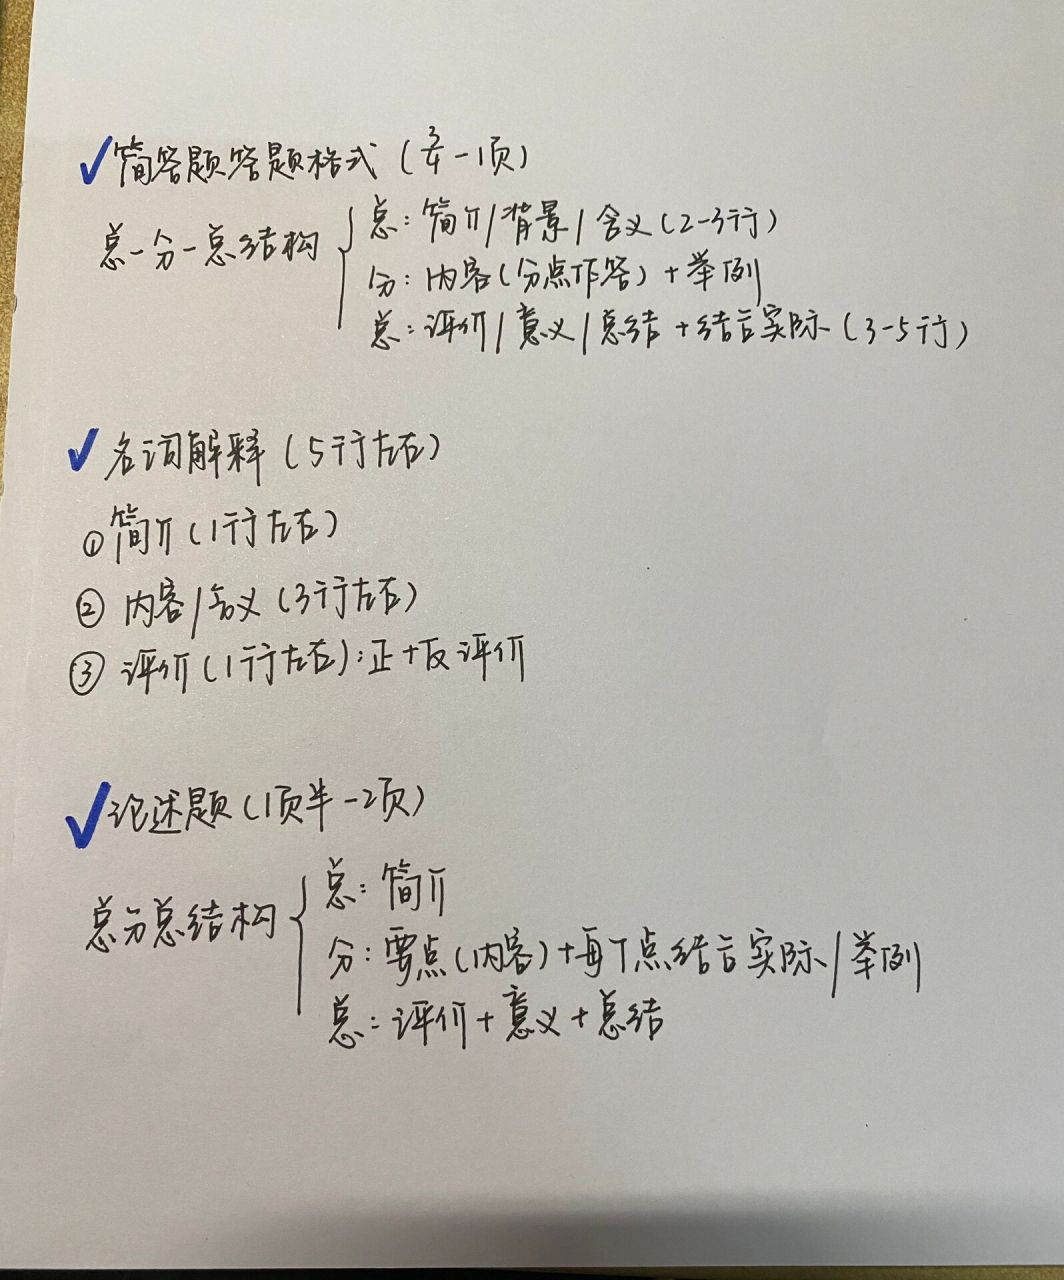 ✓简答题答题格式(3/4-1页)
总-分-总结构
总:简介/背景/含义(2-3行)
分:内容(分点作答)+举例
总:评价/意义/总结+结合实际(3-5行)
✓名词解释(5行左右)
①简介(1行左右)
②内容/含义(3行左右)
③评价(1行左右):正+反评价
✓论述题(1页半-2页)
总分总结构
总:简介
分:要点(内容)+每个点结合实际/举例
总:评价+意义+总结